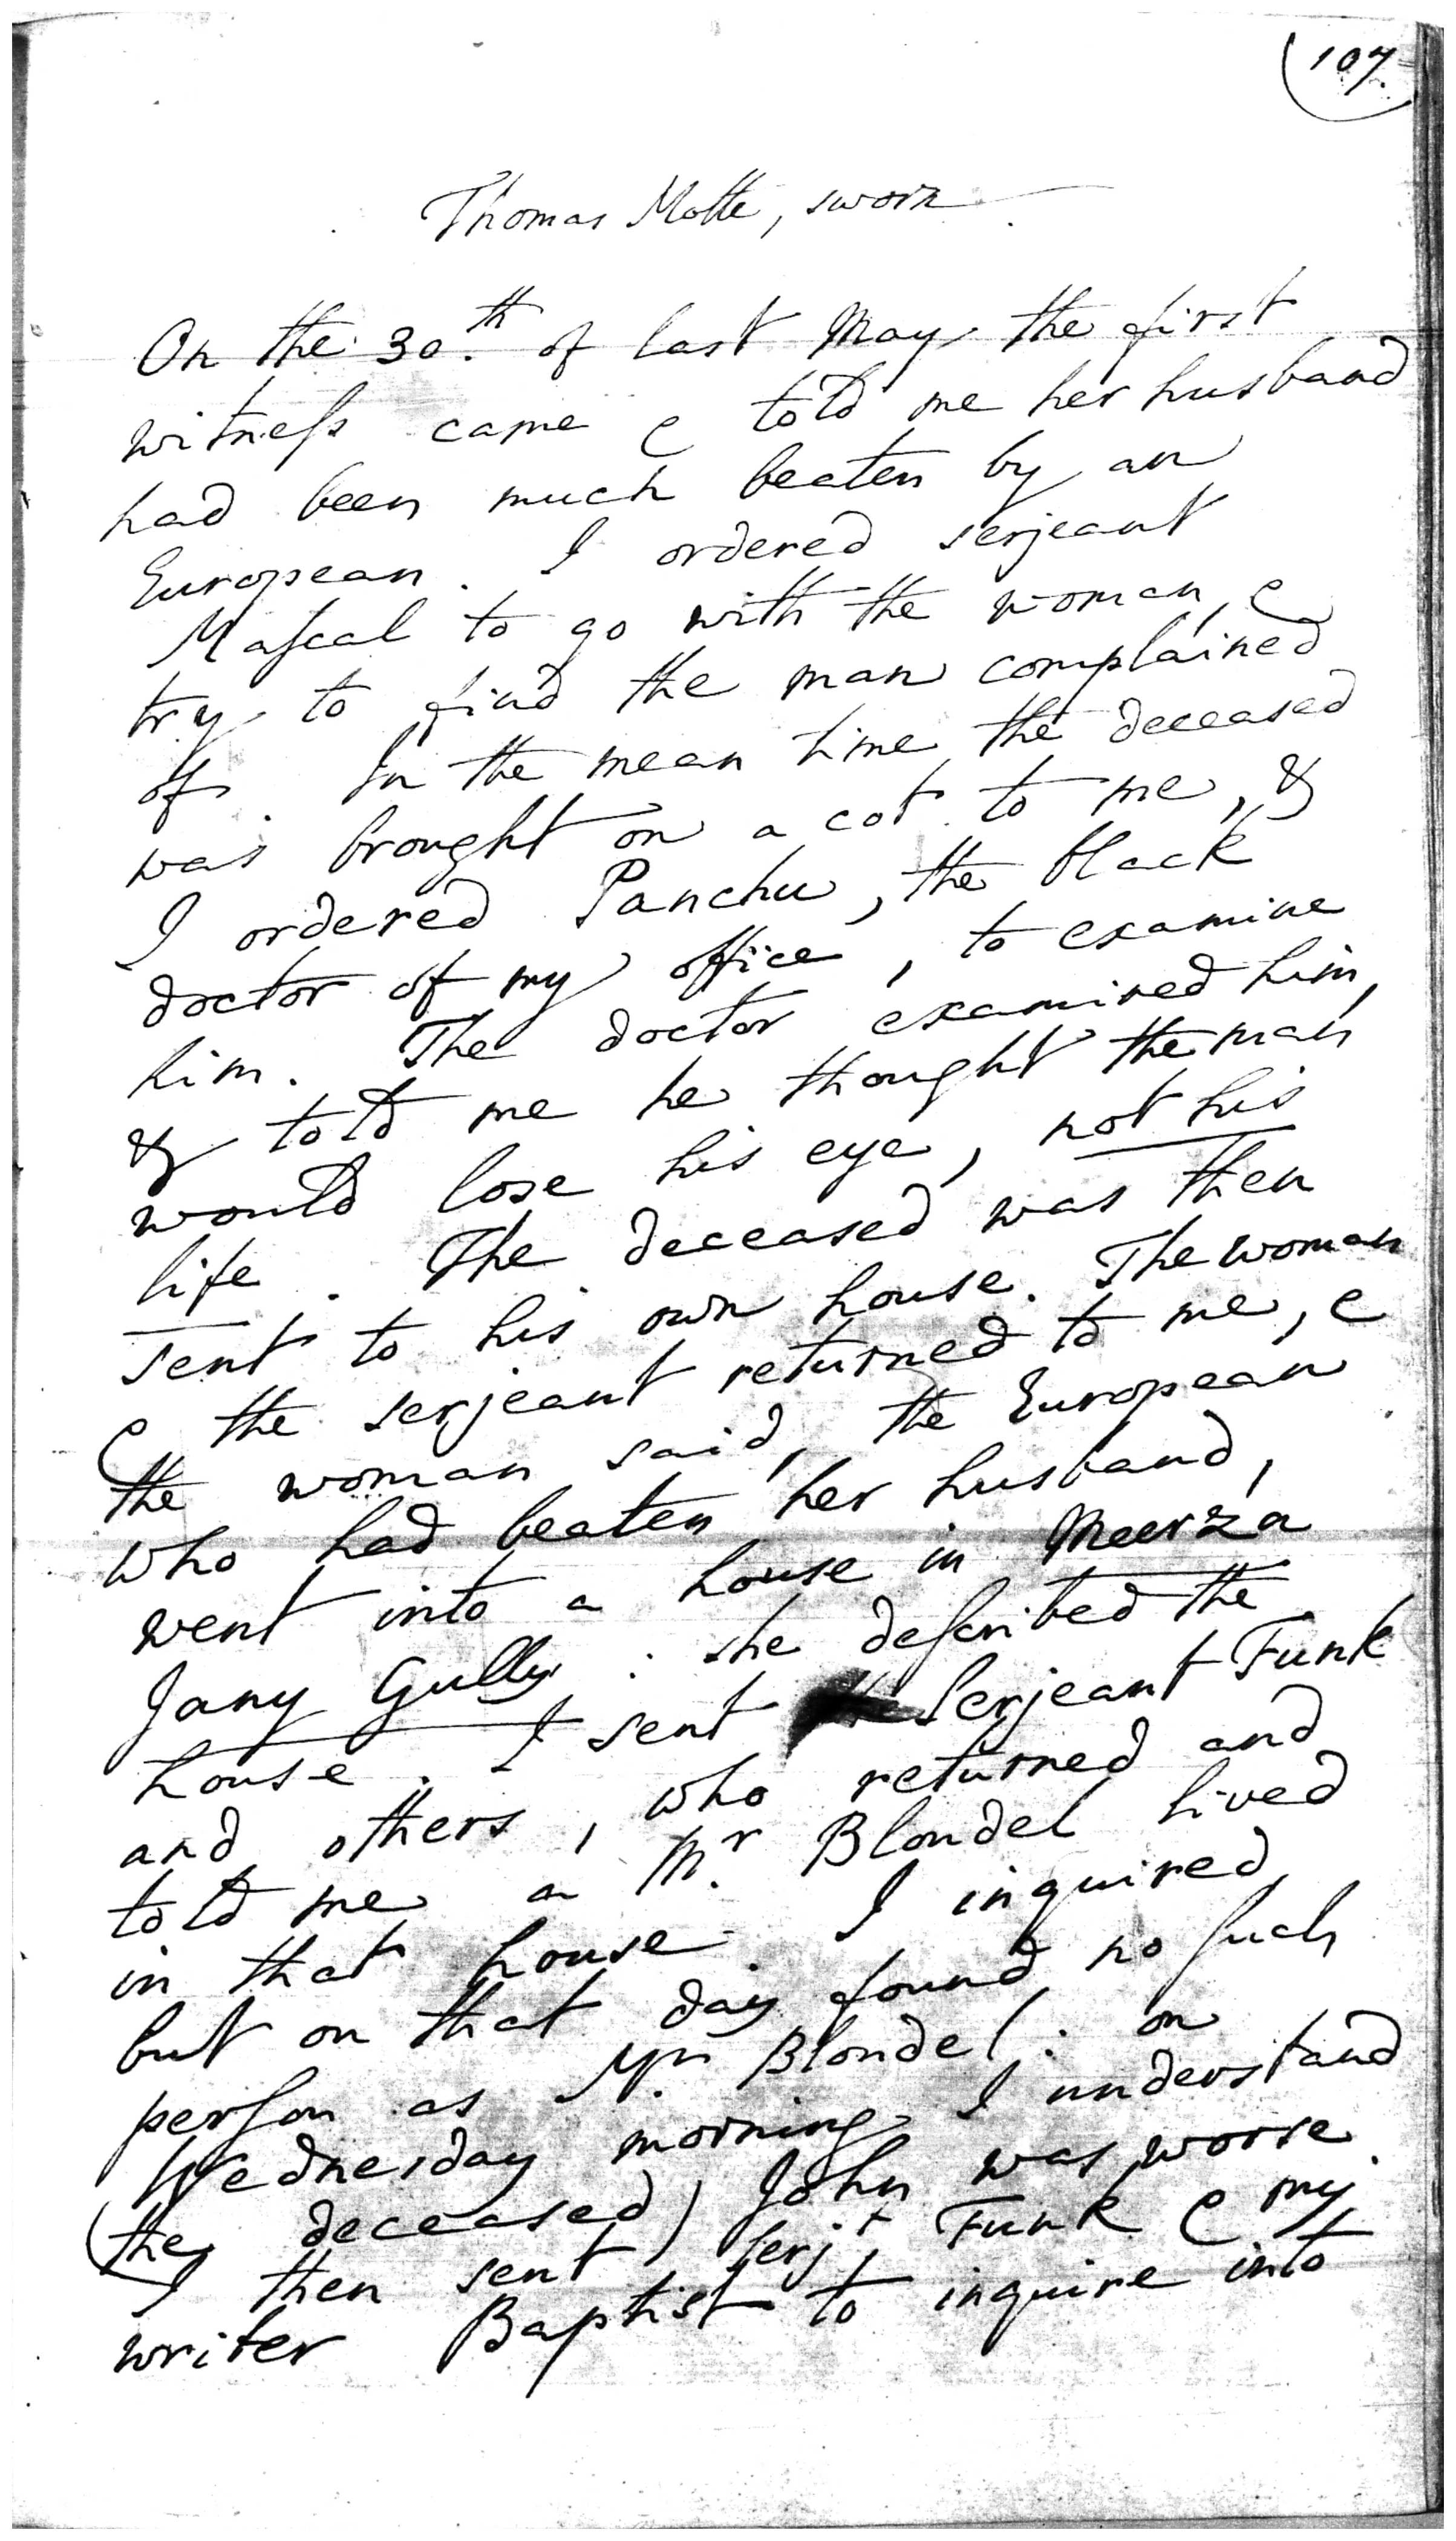 107.
Thomas Motte, sworn
On the 30.th of last May the first
witneſs came & told me her husband
had been much beaten by an
European. I ordered serjeant
Maſcal to go with the woman, &
try to find the man complained
of. In the mean time the deceased
was brought on a cot to me, &
I ordered Panchu, the black
doctor of my office, to examine
him. The doctor examined him,
& told me he thought the man
would lose his eye, not his
life. The deceased was then
sent to his own house. The woman
& the serjeant returned to me, &
the woman said, the European
who had beaten her husband,
went into a house in Meerza
Jany Gully: she deſcribed the
house. I sent Serjeant Funk
and others, who returned and
told me a Mr. Blondel lived
in that house. I inquired,
but on that day found no ſuch
perſon as Mr. Blondel: on
Wednesday morning I understand
(the deceased) John was worse
I then sent Serjt. Funk & my
writer Baptist to inquire into